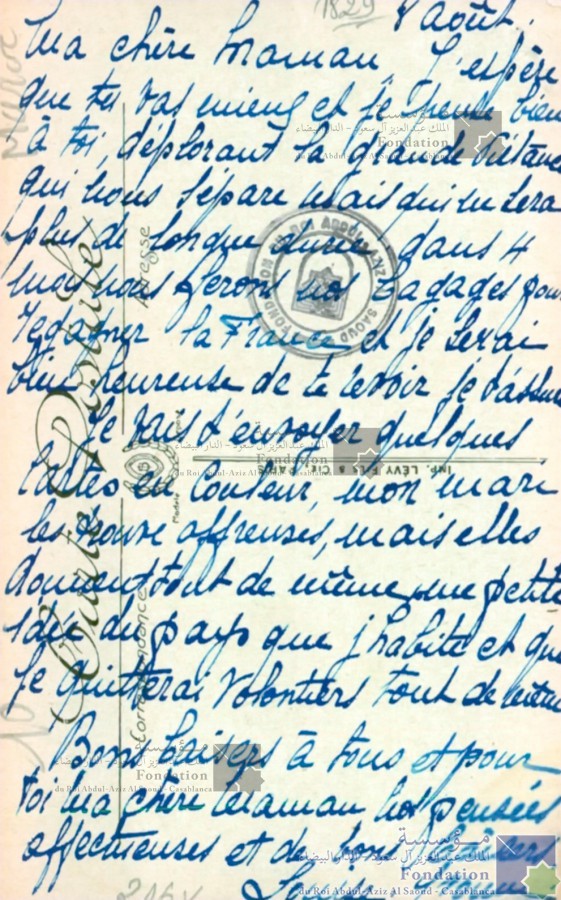 8 Août.
Ma chère Maman J'espère
que tu vas mieux et je pense bien
à toi, déplorant la grande distance
qui nous sépare mais qui ne sera
plus de longue durée, dans 4
mois nous ferons nos bagages pour
regagner la France et je serai
bien heureuse de te revoir je t'assure
Je vais t'envoyer quelques
cartes en couleur, mon mari
les trouve affreuses, mais elles
donnent tout de même une petite
idée du pays que j'habite et que
je quitterai volontiers tout de même
Bons baisers à tous et pour
toi ma chère Maman nos pensées
affectueuses et de bons baisers
Carte Postale
Correspondance
Adresse
IMP. LÉVY FILS & CIE, PARIS
Maroc
FONDATION DU ROI ABDUL AZIZ
SAOUD
مؤسسة
الملك عبد العزيز آل سعود - الدار البيضاء
Fondation
du Roi Abdul-Aziz Al Saoud - Casablanca
الملك عبد العزيز آل سعود - الدار البيضاء
Fondation
du Roi Abdul-Aziz Al Saoud - Casablanca
مؤسسة
Fondation
du Roi Abdul-Aziz Al Saoud - Casablanca
مؤسسة
الملك عبد العزيز آل سعود - الدار البيضاء
Fondation
du Roi Abdul-Aziz Al Saoud - Casablanca